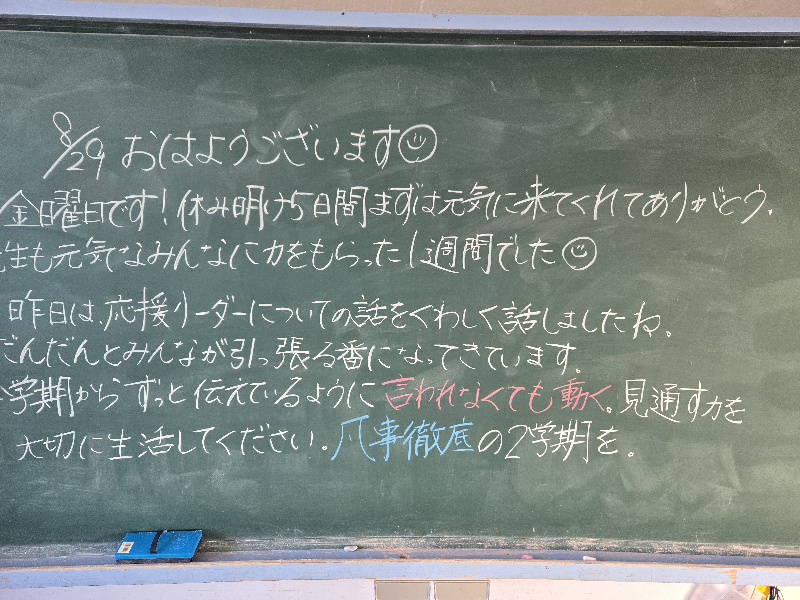 8/29 おはようございます☺
金曜日です!休み明け5日間まずは元気に来てくれてありがとう。
先生も元気なみんなに力をもらった1週間でした☺
昨日は、応援リーダーについての話をくわしく話しましたね。
だんだんとみんなが引っ張る番になってきています。
学期からずっと伝えているように言われなくても動く。見通す力を
大切に生活してください。凡事徹底の2学期を。